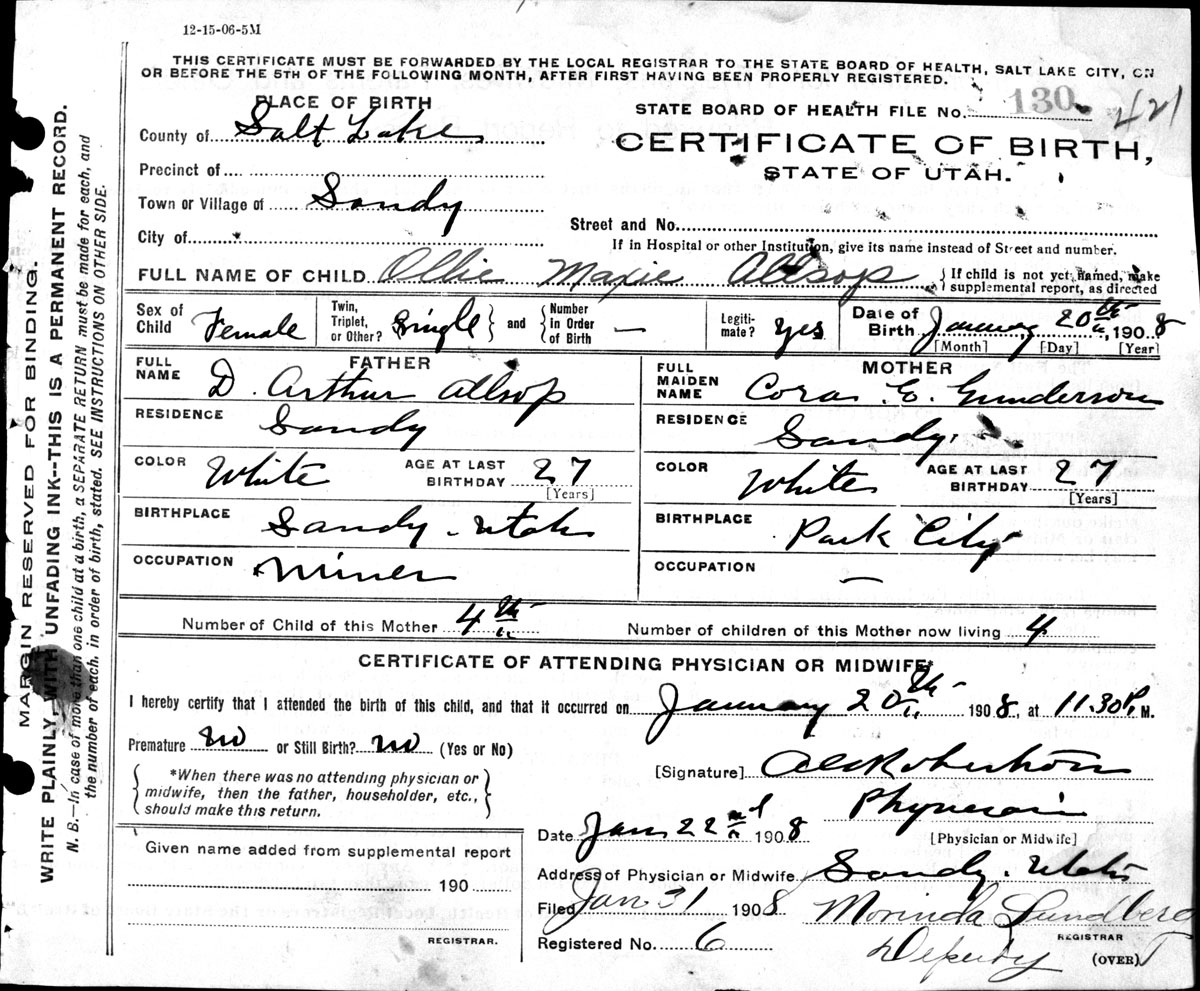 12-15-06-5M
THIS CERTIFICATE MUST BE FORWARDED BY THE LOCAL REGISTRAR TO THE STATE BOARD OF HEALTH, SALT LAKE CITY, ON
OR BEFORE THE 5TH OF THE FOLLOWING MONTH, AFTER FIRST HAVING BEEN PROPERLY REGISTERED.
PLACE OF BIRTH
County of Salt Lake
Precinct of
Town or Village of Sandy
City of
STATE BOARD OF HEALTH FILE No. 130 421
CERTIFICATE OF BIRTH,
STATE OF UTAH.
Street and No.
If in Hospital or other Institution, give its name instead of Street and number.
FULL NAME OF CHILD Ollie Maxie Allsop { If child is not yet named, make
supplemental report, as directed
Sex of Child Female Twin, Triplet, or Other? Single } and { Number in Order of Birth — Legiti- mate? Yes Date of Birth January 20th, 1908
[Month] [Day] [Year]
FATHER
FULL NAME D. Arthur Allsop
RESIDENCE Sandy
COLOR White AGE AT LAST BIRTHDAY 27
[Years]
BIRTHPLACE Sandy - Utah
OCCUPATION Miner
MOTHER
FULL MAIDEN NAME Cora E. Gunderson
RESIDENCE Sandy
COLOR White AGE AT LAST BIRTHDAY 27
[Years]
BIRTHPLACE Park City
OCCUPATION —
Number of Child of this Mother 4th Number of children of this Mother now living 4
CERTIFICATE OF ATTENDING PHYSICIAN OR MIDWIFE*
I hereby certify that I attended the birth of this child, and that it occurred on January 20th 1908, at 11.30 P. M.
Premature No or Still Birth? No (Yes or No)
{ *When there was no attending physician or
midwife, then the father, householder, etc.,
should make this return. }
[Signature] Robertson
Physician
[Physician or Midwife]
Date Jan 22nd 1908
Address of Physician or Midwife Sandy - Utah
Given name added from supplemental report
190
REGISTRAR.
Filed Jan 31 1908 Morinda Lundberg
REGISTRAR
Registered No. 6 Deputy
(OVER)
MARGIN RESERVED FOR BINDING.
WRITE PLAINLY WITH UNFADING INK--THIS IS A PERMANENT RECORD.
N. B.—In case of more than one child at a birth, a SEPARATE RETURN must be made for each, and
the number of each, in order of birth, stated. SEE INSTRUCTIONS ON OTHER SIDE.